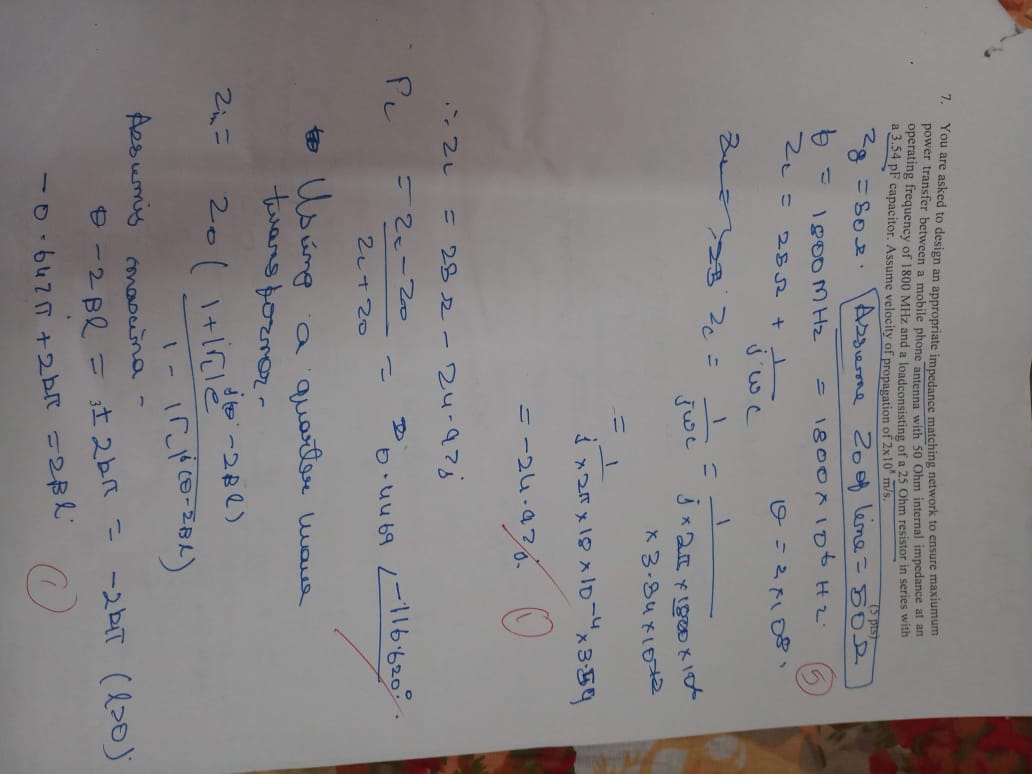 7. You are asked to design an appropriate impedance matching network to ensure maxiumum
power transfer between a mobile phone antenna with 50 Ohm internal impedance at an
operating frequency of 1800 MHz and a loadconsisting of a 25 Ohm resistor in series with
a 3.54 pF capacitor. Assume velocity of propagation of 2x10⁸ m/s.
(5 pts)
Zg = 50 Ω. Assume Z0 of line = 50 Ω
f = 1800 MHz = 1800 × 10⁶ Hz.
5
ZL = 25 Ω + 1/jωC v = 2 × 10⁸.
Zc = 1/jωc = 1/j × 2π × 1800 × 10⁶
× 3.54 × 10⁻¹²
= 1/j × 2π × 18 × 10⁻⁴ × 3.54
= -24.97j. 1
∴ ZL = 25 Ω - 24.97j
ΓL = ZL - Z0/ZL + Z0 = 0.4469 ∠-116.620°.
Using a quarter wave
transformer-
Zin = Z0 ( 1+|ΓL|e^j(θ - 2βl)/1 - |ΓL|^j(θ - 2βl) )
Assuming maxima -
θ - 2βl = ± 2kπ = -2kπ (l>0)
-0.647π + 2kπ = 2βl 1